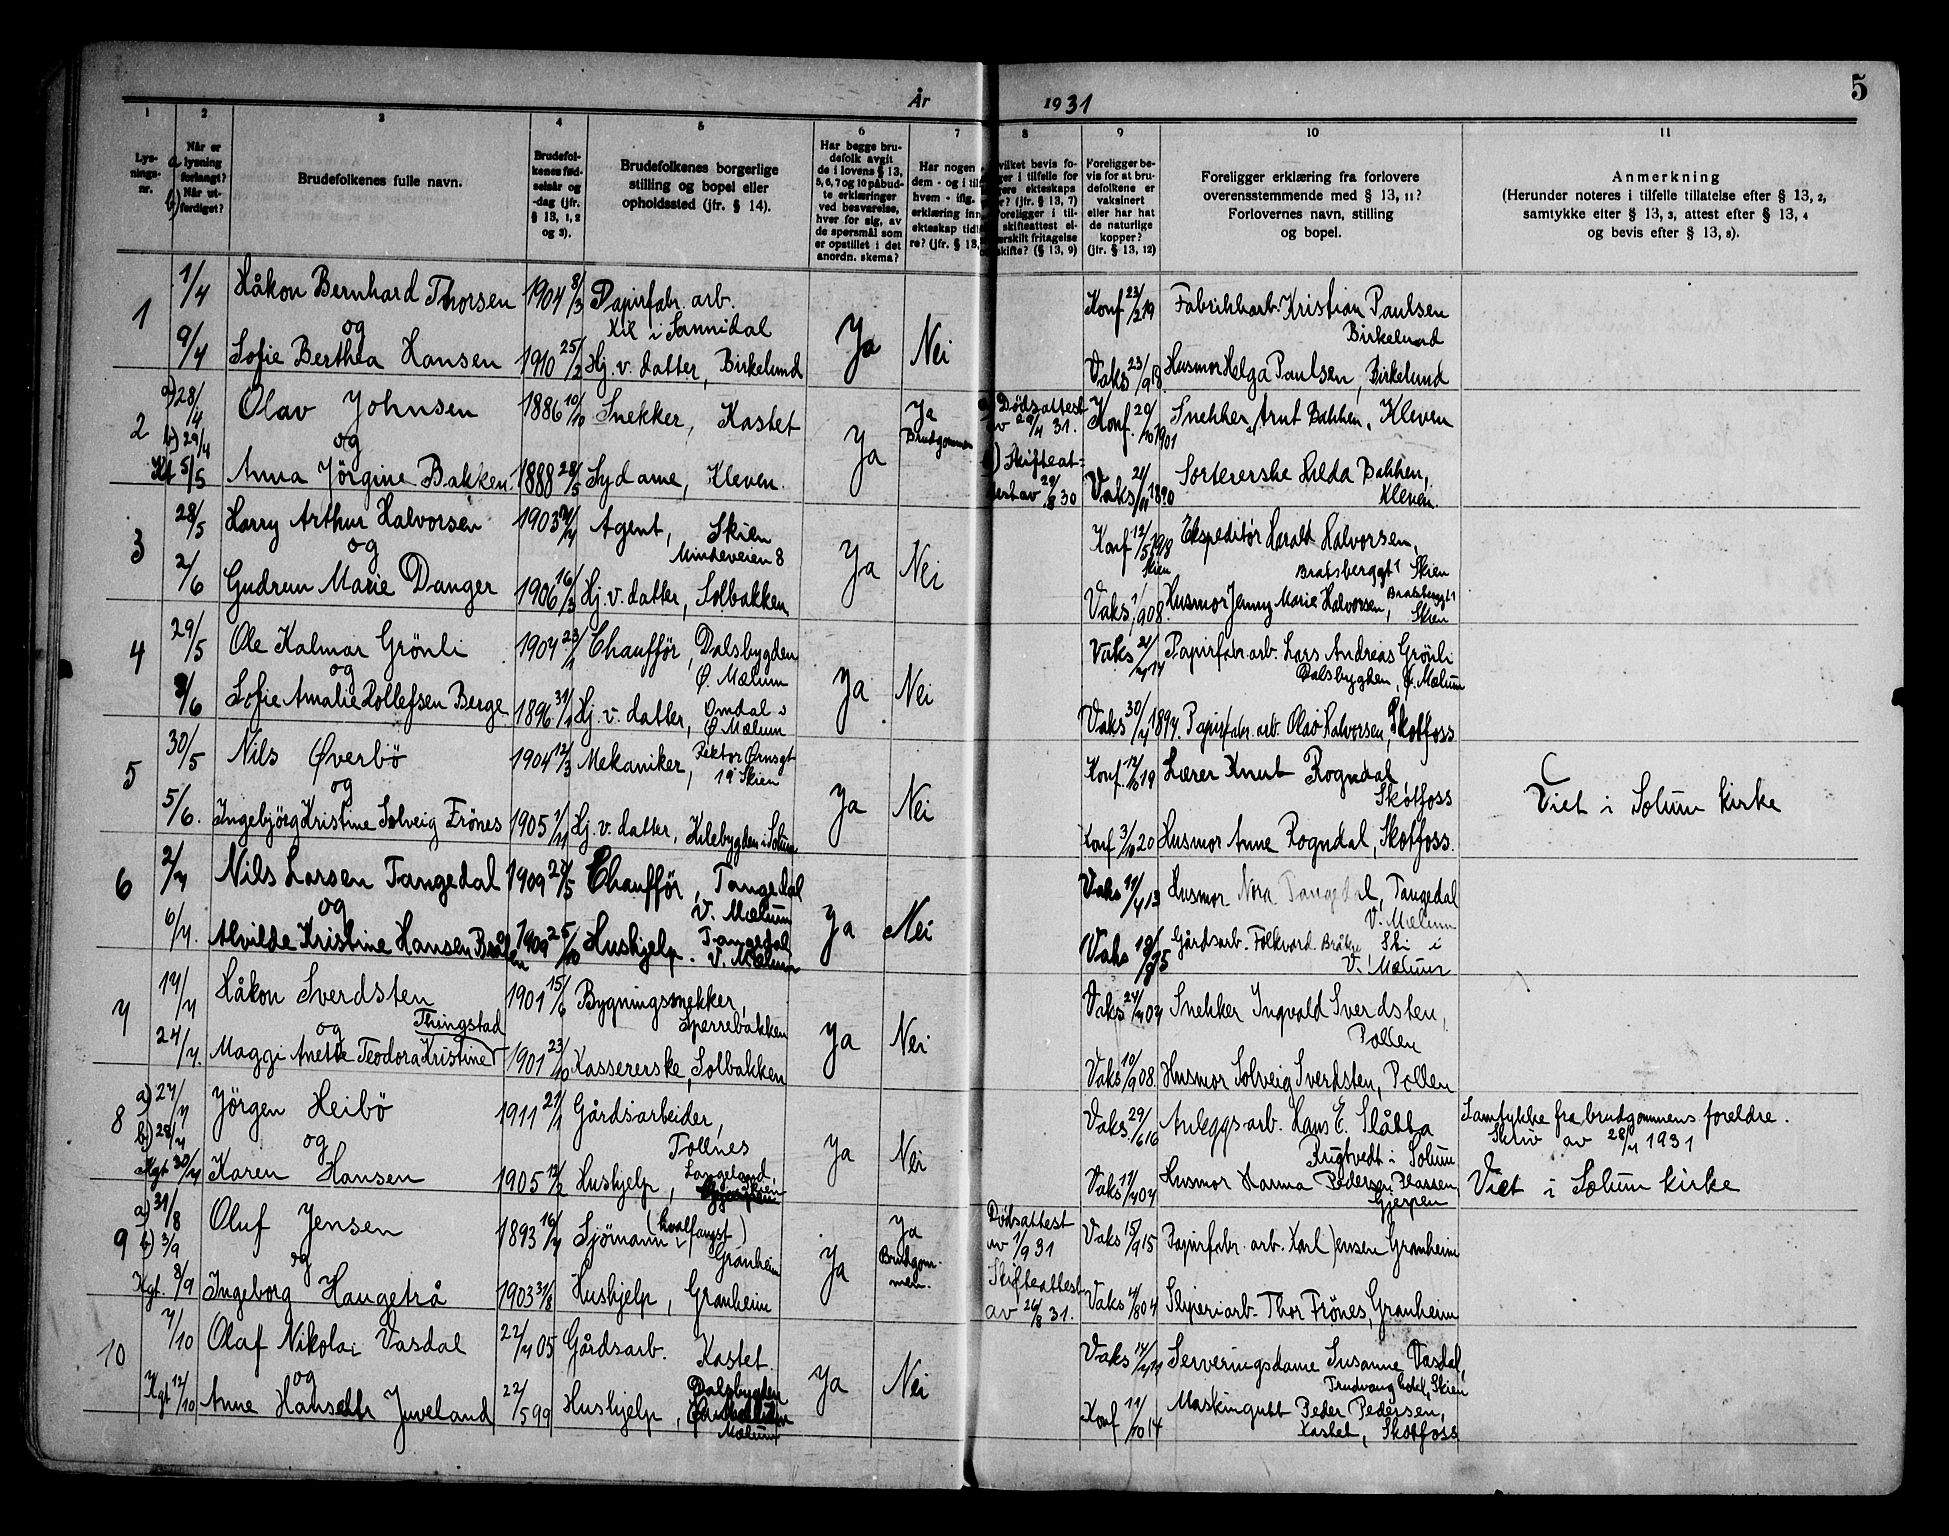 År 1931 5
1 2 3 4 5 6 7 8 9 10 11
Lys-
nings-
nr.
a
Når er
lysning
forlangt?
b)
Når ut-
ferdiget?
Brudefolkenes fulle navn.
Brudefol-
kenes fød-
selsår og
-dag (jfr.
§ 13, 1, 2
og 3).
Brudefolkenes borgerlige
stilling og bopel eller
opholdssted (jfr. § 14).
Har begge bru-
defolk avgit
de i lovens § 13,
5, 6, 7 og 10 påbud-
te erklæringer
ved besvarelse,
hver for sig, av
de spørsmål som
er opstillet i det
anordn. skema?
Har nogen
dem - og i til
hvem - iflg.
erklæring inn
ekteskap tidl
re? (jfr. § 13,
vilket bevis fo-
ger i tilfelle for
ere ekteskaps
r? (jfr. § 13, 7)
foreligger i til-
skifteattest el-
erskilt fritagelse
skifte? (§ 13, 9)
Foreligger be-
vis for at bru-
defolkene er
vaksinert
eller har hat
de naturlige
kopper?
(jfr. § 13, 12)
Foreligger erklæring fra forlovere
overensstemmende med § 13, 11?
Forlovernes navn, stilling
og bopel.
Anmerkning
(Herunder noteres i tilfelle tillatelse efter § 13, 2,
samtykke efter § 13, 3, attest efter § 13, 4
og bevis efter § 13, 8).
1 1/4 Håkon Bernhard Thorsen 1904 8/3 Papirfabr. arb.
Kil i Sannidal Ja Nei Konf 23/2 19 Fabrikkarb. Kristian Paulsen
Birkelund
og
9/4 Sofie Berthea Hansen 1910 25/2 Hj. v. datter, Birkelund Vaks 23/9 18 Husmor Helga Paulsen, Birkelund
2 a) 28/4 Olav Johnsen 1886 10/10 Snekker, Kastet Ja Ja
Brudgommen Dødsattest
av 29/4 31. Konf. 20/10 1901 Snekker Arnt Bakken, Kleven
b) 29/4 og
Kl 5/5 Anna Jörgine Bakken 1888 28/5 Sydame, Kleven. Skifteat-
test av 29/8 30 Vaks 21/11 1890 Sortererske Hilda Bakken,
Kleven.
3 28/5 Harry Arthur Halvorsen 1903 Agent, Skien
Mindeveien 8 Ja Nei Konf 12/5 1918
Skien Ekspeditør Harald Halvorsen,
Bratsberggt 1 Skien
og
2/6 Gudrun Marie Danger 1906 16/3 Hj. v. datter, Solbakken Vaks 1908. Husmor Jenny Marie Halvorsen, Bratsberggt 1
Skien
4 29/5 Ole Kalmar Grönli 1904 Chaufför, Dalsbygden
Ø. Mælum Ja Nei Vaks Papirfabr. arb. Lars Andreas Grönli
Dalsbygden, Ø. Mælum
og
8/6 Sofie Amalie Rollefsen Berge 1896 Hj. v. datter, Omdal i
Ø Mælum Vaks 30/4 1897. Papirfabr. arb. Olav Halvorsen, Skotfoss
5 30/5 Nils Øverbö 1904 12/3 Mekaniker, Rektor Ørnsgt
19 Skien Ja Nei Konf. 12/10 19 Lærer Knut Rogndal
Skotfoss Viet i Solum kirke
og
5/6. Ingebjörg Kristine Solveig Frönes 1905 Hj. v. datter, Kilebygden i Solum Konf 3/10 20 Husmor Anne Rogndal, Skotfoss.
6 2/7 Nils Larsen Tangedal 1909 27/5 Chaufför, Tangedal
V. Mælum Ja Nei Vaks 13 Husmor Nora Tangedal, Tangedal
V. Mælum
og
6/7. Alvilde Kristine Hansen Bråten 1909 25/10 Hushjelp. Tangedal
V. Mælum Vaks Gårdsarb. Folkvord Ski i
V. Mælum
7 14/7 Håkon Sverdsten 1901 15/6 Bygningssnekker,
Sperrebakken Ja Nei Vaks 24/7 04 Snekker Ingvald Sverdsten,
Pollen
og Thingstad
24/7. Maggi Anette Teodora Kristine 1901 23/10 Kassererske, Solbakken Vaks 10/9 08. Husmor Solveig Sverdsten, Pollen
8 a) 27/7 Jörgen Heibö 1911 Gårdsarbeider,
Tollnes Ja Nei Vaks. 29/6 16 Anleggsarb. Hans E. Slåtta
Rugtvedt i Solum Samtykke fra brudgommens foreldre.
Skriv av 28/7 1931
b) 28/7 og
Kgt 30/7 Karen Hansen 1905 12/2 Hushjelp, Langeland, Vaks 04 Husmor Hanna Pedersen Plassen
Gjerpen Viet i Solum kirke
9 a) 31/8 Oluf Jensen 1893 16/7 Sjömann (hvalfangst)
Granheim Ja Ja
Brudgom-
men. Dødsattest
av 1/9 31 Vaks 15/9 15 Papirfabr. arb. Karl Jensen Granheim
b) 3/9 og
Kgt. 8/9 Ingeborg Haugetrå 1903 31/8 Hushjelp, Granheim Skifteattest
av 26/8 31. Vaks 4/8 04 Sliperiarb. Thor Frönes, Granheim
10 7/10 Olaf Nikolai Vasdal 22/7 05 Gårdsarb. Kastet. Ja Nei Vaks 14/7 11 Serveringsdame Susanne Vasdal,
Trudvang hotel, Skien
og
Kgt 12/10 Anne Hansette Juveland 22/5 99 Hushjelp, Dalsbygden
Mælum Konf 11/10 14 Maskingutt Peder Pedersen,
Kastet, Skotfoss